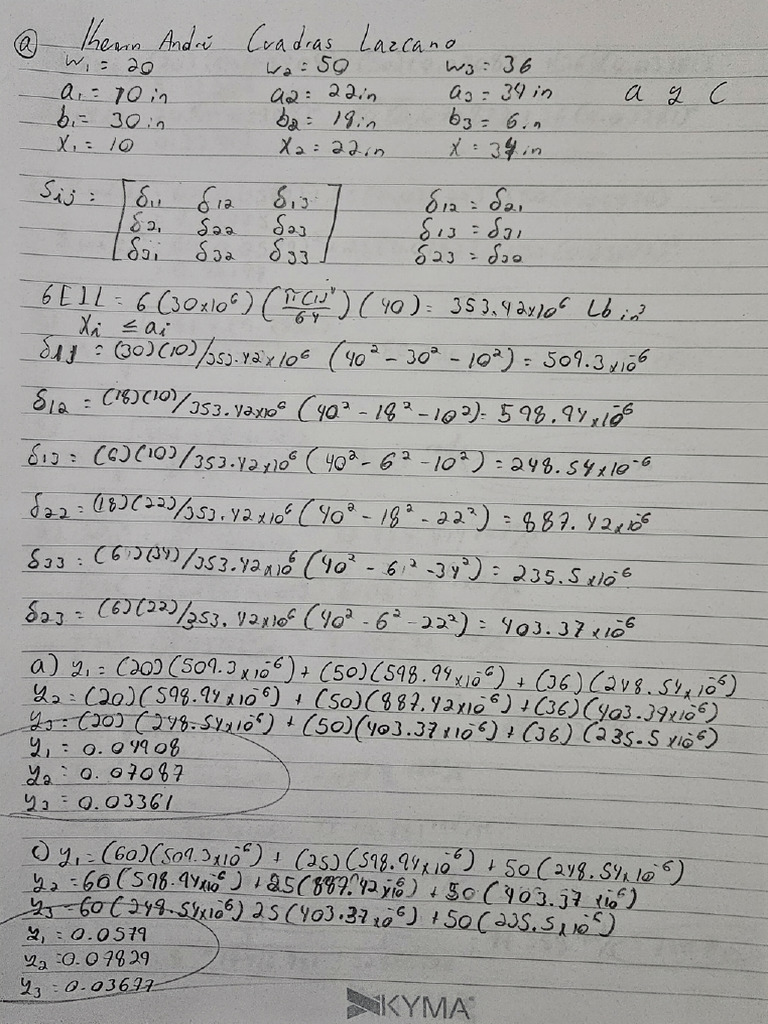 a
André Cuadras Lazcano
w₁ = 20 w₂ = 50 w₃ = 36
a₁ = 10 in a₂ = 22in a₃ = 34 in a y c
b₁ = 30 in b₂ = 18in b₃ = 6in
x₁ = 10 x₂ = 22in x = 34in
Sij = [δ₁₁ δ₁₂ δ₁₃ δ₁₂ = δ₂₁
δ₂₁ δ₂₂ δ₂₃ δ₁₃ = δ₃₁
δ₃₁ δ₃₂ δ₃₃] δ₂₃ = δ₃₂
6EIL = 6(30x10⁶)(π(1)⁴/64)(40) = 353.42x10⁶ Lb in³
xi ≤ ai
δ₁₁ = (30)(10)/353.42x10⁶ (40² - 30² - 10²) = 509.3x10⁻⁶
δ₁₂ = (18)(10)/353.42x10⁶ (40² - 18² - 10²) = 598.94x10⁻⁶
δ₁₃ = (6)(10)/353.42x10⁶ (40² - 6² - 10²) = 248.54x10⁻⁶
δ₂₂ = (18)(22)/353.42x10⁶ (40² - 18² - 22²) = 887.42x10⁻⁶
δ₃₃ = (6)(34)/353.42x10⁶ (40² - 6² - 34²) = 235.5x10⁻⁶
δ₂₃ = (6)(22)/353.42x10⁶ (40² - 6² - 22²) = 403.37x10⁻⁶
a) y₁ = (20)(509.3x10⁻⁶) + (50)(598.94x10⁻⁶) + (36)(248.54x10⁻⁶)
y₂ = (20)(598.94x10⁻⁶) + (50)(887.42x10⁻⁶) + (36)(403.37x10⁻⁶)
y₃ = (20)(248.54x10⁻⁶) + (50)(403.37x10⁻⁶) + (36)(235.5x10⁻⁶)
y₁ = 0.04908
y₂ = 0.07087
y₃ = 0.03361
c) y₁ = (60)(509.3x10⁻⁶) + (25)(598.94x10⁻⁶) + 50(248.54x10⁻⁶)
y₂ = 60(598.94x10⁻⁶) + 25(887.42x10⁻⁶) + 50(403.37x10⁻⁶)
y₃ = 60(248.54x10⁻⁶) 25(403.37x10⁻⁶) + 50(235.5x10⁻⁶)
y₁ = 0.0579
y₂ = 0.07829
y₃ = 0.03677
KYMA